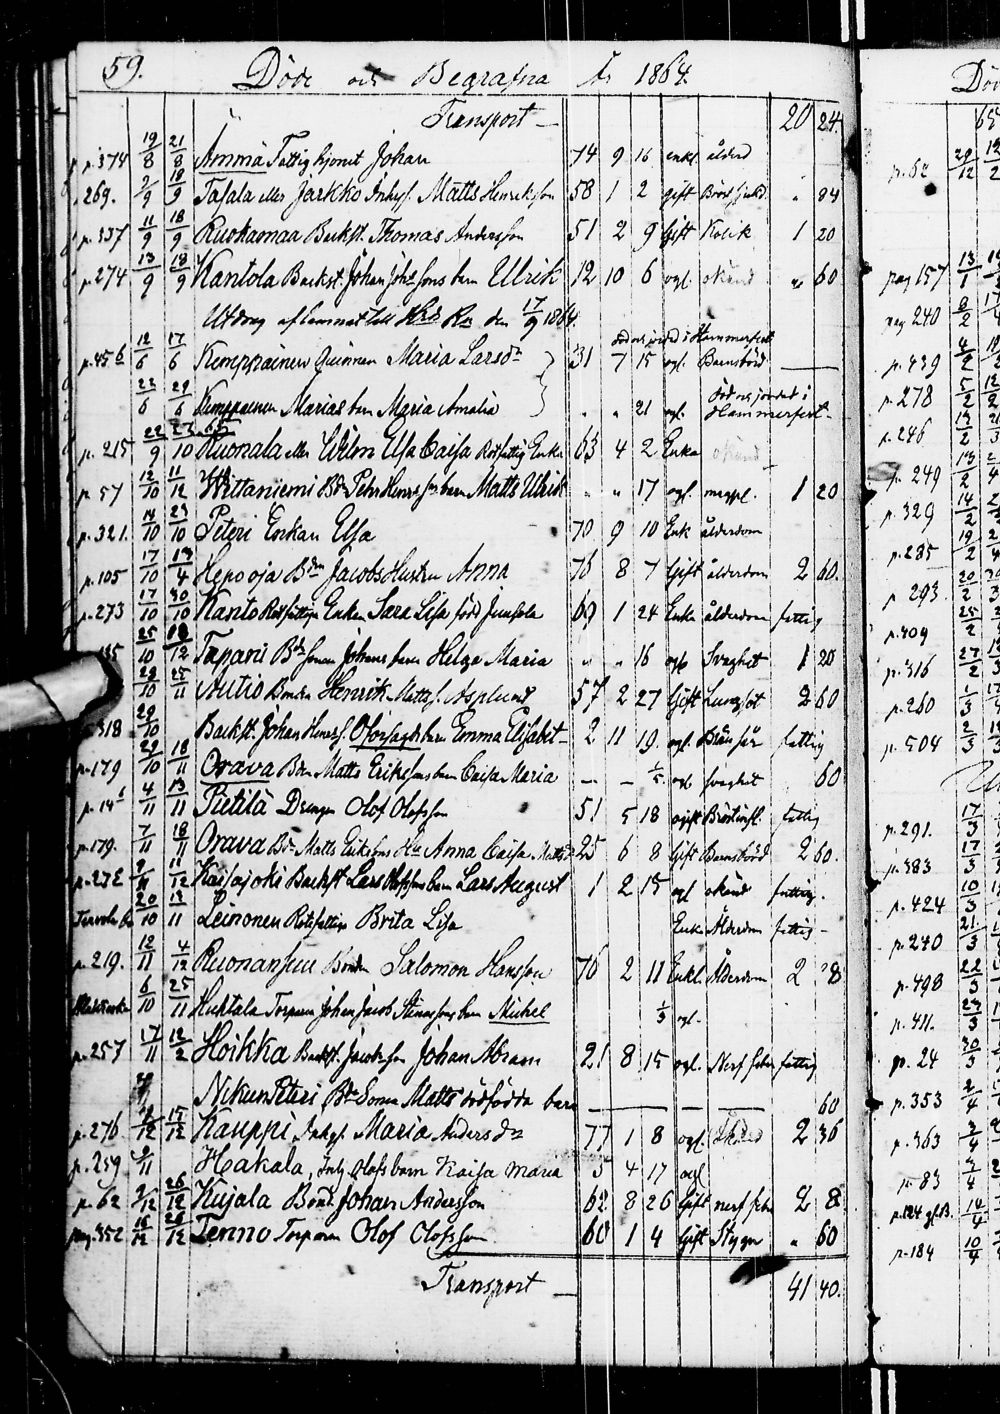 59. Döde och Begrafna År 1864.
Transport 20 24.
p. 374 19/8 21/8 Ämmä Fattighjonet Johan 74 9 16 enkl. ålderd
269. 9/9 18/9 Tasala eller Jarkko Inhys. Matts Henriksson 58 1 2 gift 84
p. 337 11/9 18/9 Ruokamaa Backst. Thomas Andersson 51 2 9 Gift Kolik 1 20
p. 274 13/9 18/9 Kantola Backst. Johan Joh:sons barn Ullrik 12 10 6 ogl. okänd " 60
Utdrag aflemnat till Hrds Rn den 17/9 1864.
p. 456 12/6 17/6 Kemppainen Quinnan Maria Larsdr 31 7 15 ogl. Barnsbörd död och jordad i Hammerfest
22/6 29/6 Kemppainen Marias barn Maria Amalia " " 21 ogl. död och jordad i Hammerfest
p. 215 22/9 23/10 65 Ruonala eller Wilen Elsa Caisa Rotfattig Enka 63 4 2 Enka okänd
p. 57 12/10 11/12 Wittaniemi Bd. Pehr Henr:sons barn Matts Ulrik " " 17 ogl. magpl. 1 20
p. 321. 14/10 23/10 Peteri Enkan Elsa 70 9 10 Enk ålderdom
p. 105 17/10 13/4 Hepooja Bdn Jacobs Hustru Anna 76 8 7 Gift ålderdom 2 60.
p. 273 17/10 30/10 Kanto Rotfattiga Enkan Sara Lisa född Junsola 69 1 24 Enka ålderdom fattig
25/10 18/12 Tapani Bd. sonen Johans barn Helge Maria " " 16 ogl. Svaghet 1 20
29/10 25/11 Autio Bonden Henrik Matts. Asplund 57 2 27 Gift Lungsot 2 60
318 29/10 Backst. Johan Henrs. Oforsagds barn Emma Elisabet 2 11 19. ogl. fattig
p. 179 29/10 18/11 Orava Bdn Matts Erikssons barn Caisa Maria — — 1/5 ogl svaghet 60
p. 14 4/11 13/11 Pietilä Drengen Olof Olofsson 51 5 18 ogift Bröstinfl. fattig
p. 179. 7/11 18/11 Orava Bdn Matts Erikssons Hu Anna Caisa Mattsdr 25 6 8 Gift Barnsbörd 2 60.
p. 272 9/11 11/12 Kaisajoki Backst Lars Olofssons barn Lars August 1 2 15 ogl okänd fattig.
20/10 13/11 Leinonen Rotefattiga Brita Lisa Enka Ålderdom fattig
p. 219. 12/11 4/12 Ruonansuu Bonden Salomon Hansson 76 2 11 Enkl. Ålderdom 2 28
6/10 25/11 Huhtala Torparen Johan Jacob barn Michel 1/3 ogl.
p. 257 17/11 12/2 Hoikka Backst. Jacobsson Johan Abram 21 8 15 ogl. Nerf feber fattig
Nikunpeteri Bde Sonen Matts dödfödda barn — — — 60
p. 276 /12 15/12 Kauppi Inhys. Maria Andersdr 77 1 8 ogl. 2 36
p. 259 9/11 Hakala, Inhy Olofs barn Kaisa Maria 5 4 17 ogl
p. 62 9/12 26/12 Kujala Bond. Johan Andersson 62 8 26 Gift nerf feber 2 8
pag. 352 16/12 26/12 Tenno Torparen Olof Olofsson 60 1 4 Gift Stygn " 60
Transport — 41 40.
Död
p. 62 29/12
pag 157 13/1
pag 240 8/2
p. 439 4/2
p. 278 5/2
p. 246 13/2
p. 249 13/2
p. 329 14/2
p. 285 19/2
p. 293 20/2
p. 409 25/2
p. 316 27/2
p. 260 1/3
p. 504 2/3
p. 291. 17/3
p. 383 17/3
p. 424 10/3
p. 240 21/3
p. 498 22/3
p. 411. 23/3
p. 24 30/3
p. 353 2/4
p. 363 3/4
p. 83 7/4
p. 124 14/4
p. 184 10/4